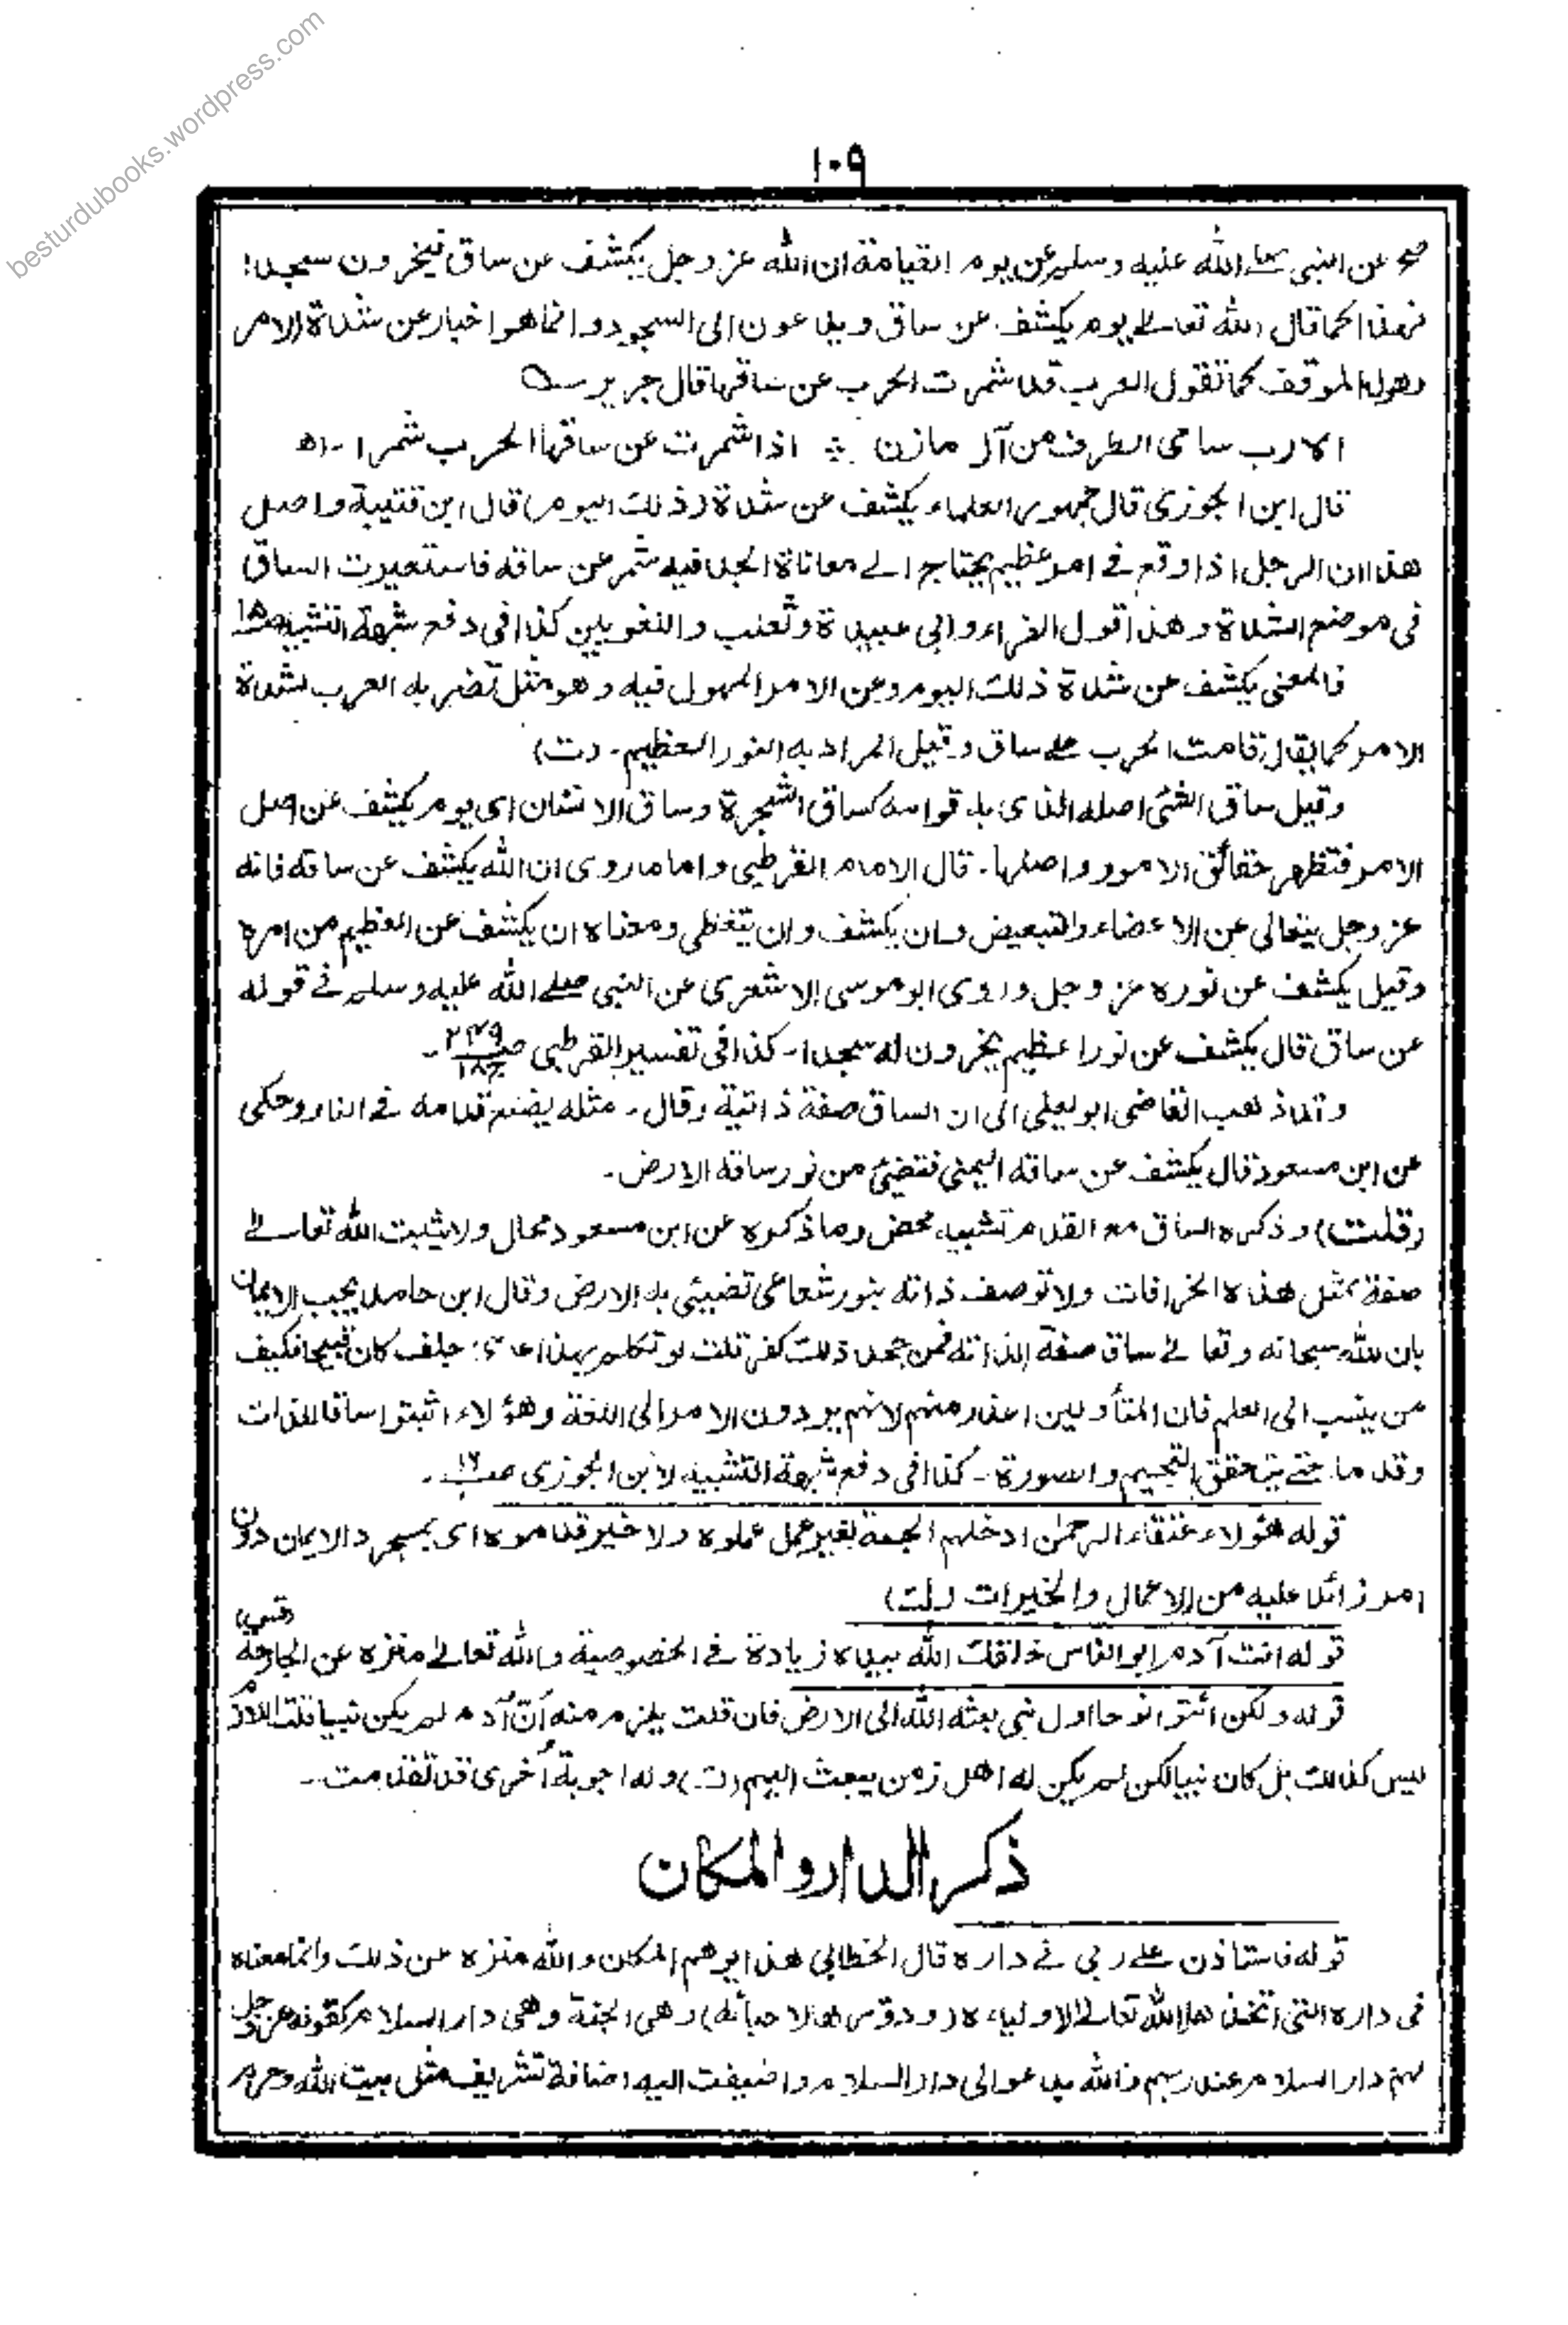 besturdubooks.wordpress.com
١٠٩
صح عن النبي صلے الله عليه وسلم عن يوم القيامة ان الله عز وجل يكشف عن ساق فيخرون سجدا
فهذا كما قال الله تعالے يوم يكشف عن ساق ويدعون الى السجود وانما هو اخبار عن شدة الامر
وهول الموقف كما تقول العرب قد شمرت الحرب عن ساقها قال جرير ـه
الا رب سامى الطرف من آل مازن ؞ اذا شمرت عن ساقها الحرب شمرا ـ اھ
قال ابن الجوزى قال جمهور العلماء يكشف عن شدة (ذلك اليوم) قال ابن قتيبة واصل
هذا ان الرجل اذا وقع فے امر عظيم يحتاج الے معاناة الجد فيه شمر عن ساقه فاستعيرت الساق
فى موضع الشدة وهذا قول الفراء وابى عبيدة وثعلب واللغويين كذا فى دفع شبهة التشبيه ص١٥
فالمعنى يكشف عن شدة ذلك اليوم وعن الامر المهول فيه وهو مثل تضربه العرب لشدة
الامر كما يقال قامت الحرب علے ساق وقيل المراد به النور العظيم ـ (ت)
وقيل ساق الشئ اصله الذى به قوامه كساق الشجرة وساق الانسان اى يوم يكشف عن اصل
الامر فتظهر حقائق الامور واصلها ـ قال الامام القرطبى واما ما روى ان الله يكشف عن ساقه فانه
عز وجل يتعالى عن الاعضاء والتبعيض وان يكشف وان يتغطى ومعناه ان يكشف عن العظيم من امره
وقيل يكشف عن نوره عز وجل وروى ابو موسى الاشعرى عن النبى صلے الله عليه وسلم فے قوله
عن ساق قال يكشف عن نور اعظيم يخرون له سجدا ـ كذا فى تفسير القرطبى ص٢٤٩ ج١٨ ـ
وقد ذهب القاضى ابو يعلى الى ان الساق صفة ذاتية وقال ـ مثله يضع قدمه فے النار وحكى
عن ابن مسعود قال يكشف عن ساقه اليمنى فتضيئ من نور ساقه الارض ـ
(قلت) وذكره الساق مع القدم تشبيه محض وما ذكره عن ابن مسعود محال ولا يثبت الله تعالے
صفة بمثل هذه الخرافات ولا توصف ذاته بنور شعاعى تضيئى به الارض وقال ابن حامد يجب الايمان
بان لله سبحانه وتعالے ساق صفة لذاته فمن جحد ذلك كفر قلت لو تكلم بهذا عامى جلف كان قبيحا فكيف
من ينسب الى العلم فان المتأولين اعذر منهم لانهم يردون الامر الى اللغة وهؤلاء اثبتوا ساقا للذات
وقدما حتے يتحقق التجسيم والصورة ـ كذا فى دفع شبهة التشبيه لابن الجوزى ص١٦ ـ
قوله هؤلاء عتقاء الرحمن ادخلهم الجنة بغير عمل عملوه ولا خير قدموه اى بمجرد الايمان دون
امر زائد عليه من الاعمال والخيرات (ك ت)
قوله انت آدم ابو الناس خلقك الله بيده زيادة فے الخصوصية والله تعالے منزه عن الجارحة (قس)
قوله ولكن ائتوا نوحا اول نبى بعثه الله الى الارض فان قلت يلزم منه ان آدم لم يكن نبيا قلت اللازم
ليس كذلك بل كان نبيا لكن لم يكن له اهل زمن يبعث اليهم (ت) وله اجوبة أخرى قد تقدمت ـ
ذكر الدار والمكان
قوله فاستاذن علے ربى فے داره قال الخطابى هذا يوهم المكان والله منزه عن ذلك وانما معناه
فى داره التى اتخذها الله تعالے لاولياءه (و لاحبائه) وهى الجنة وهى دار السلام كقوله عز وجل
لهم دار السلام عند ربهم والله يدعو الى دار السلام واضيفت اليه اضافة تشريف مثل بيت الله وحرم